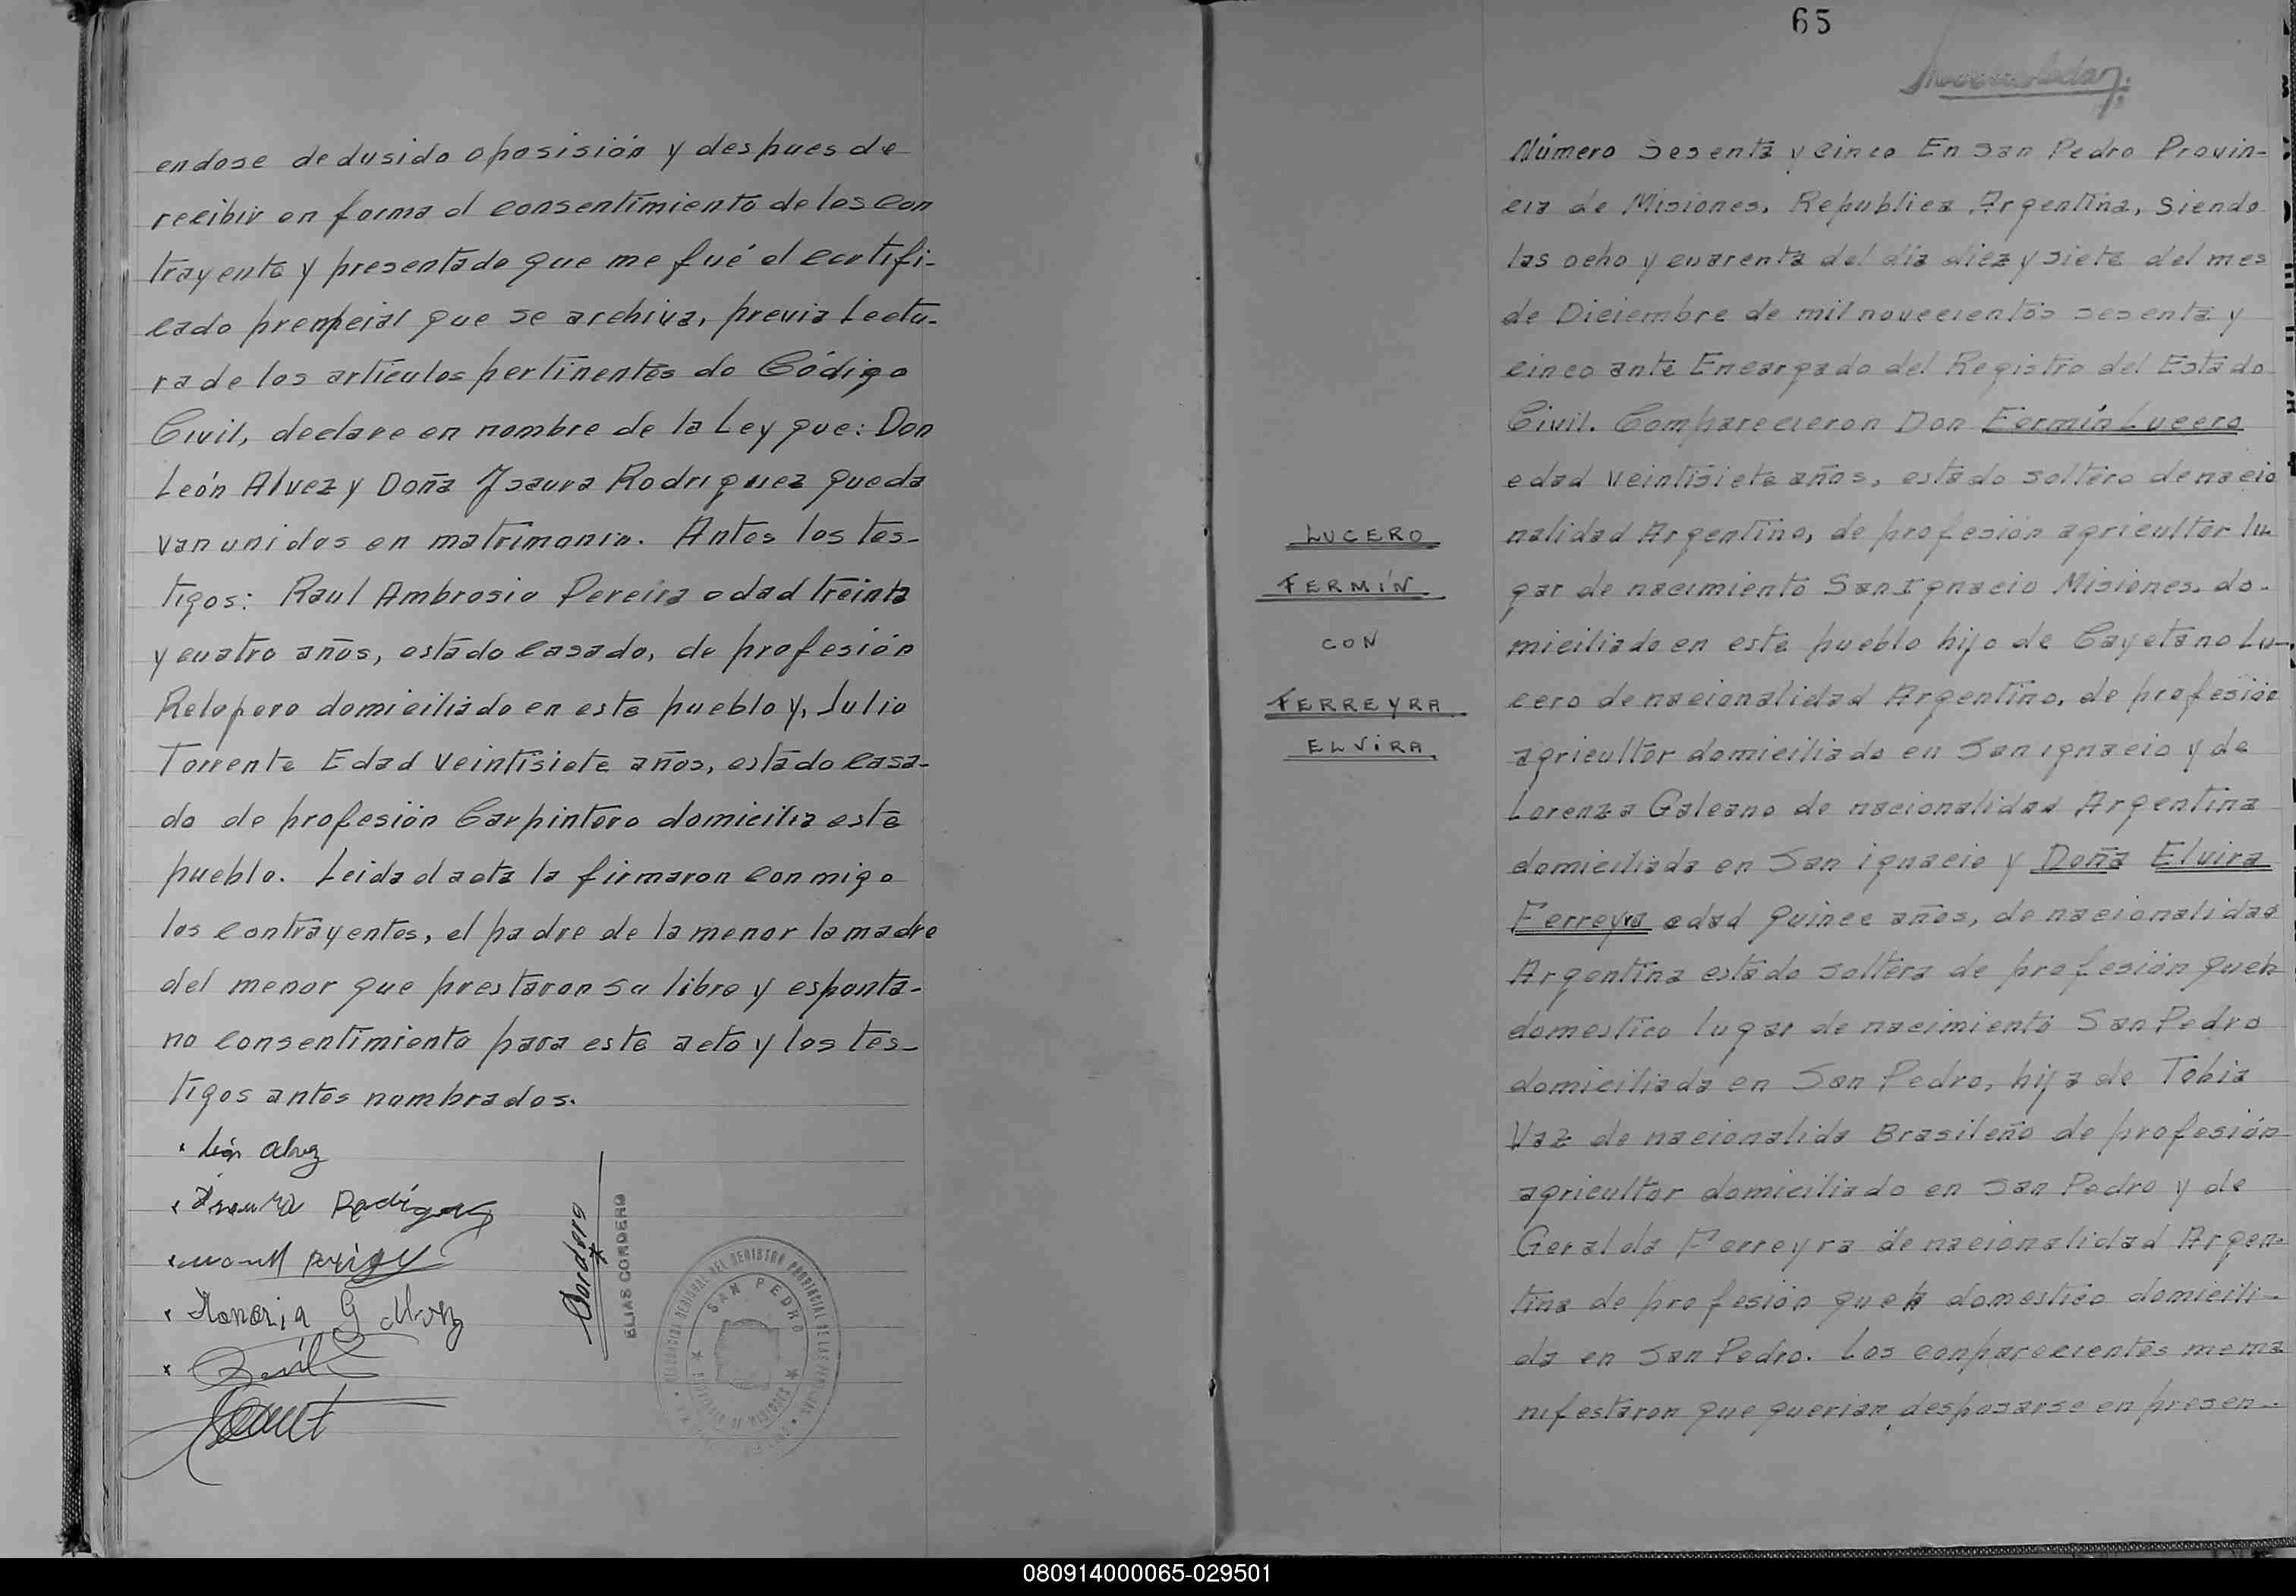 endose dedusido oposisión y despues de
recibir en forma el consentimiento de los con
trayente y presentado que me fué el certifi-
cado prenpcial que se archiva, previa Lectu-
ra de los artículos pertinentes do Código
Civil, declare en nombre de la Ley que: Don
León Alvez y Doña Isaura Rodriguez queda
van unidos en matrimonio. Antes los tes-
tigos: Raul Ambrosio Pereira edad treinta
y cuatro años, estado casado, de profesión
Relojero domiciliado en este pueblo y, Julio
Torrente Edad veintisiete años, estado casa-
do de profesión Carpintero domicilia este
pueblo. Leida el acta la firmaron conmigo
los contrayentes, el padre de la menor la madre
del menor que prestaron su libre y esponta-
no consentimiento para este acto y los tes-
tigos antes nombrados.
León Alvez
Isaura Rodriguez
Honoria G Alvez
Cordero
ELIAS CORDERO
DELEGACION REGIONAL DEL REGISTRO PROVINCIAL DE LAS PERSONAS
SAN PEDRO
PROVINCIA DE MISIONES
65
LUCERO
FERMÍN
CON
FERREYRA
ELVIRA
Número Sesenta y cinco En San Pedro Provin-
cia de Misiones, Republica Argentina, Siendo
las ocho y cuarenta del día diez y siete del mes
de Diciembre de mil novecientos sesenta y
cinco ante Encargado del Registro del Estado
Civil. Comparecieron Don Fermín Lucero
edad veintisiete años, estado soltero de nacio
nalidad Argentino, de profesión agricultor lu
gar de nacimiento San Ignacio Misiones, do-
miciliado en este pueblo hijo de Cayetano Lu-
cero de nacionalidad Argentino, de profesión
agricultor domiciliado en San ignacio y de
Lorenza Galeano de nacionalidad Argentina
domiciliada en San ignacio y Doña Elvira
Ferreyra edad quince años, de nacionalidad
Argentina estado soltera de profesión queh
domestico lugar de nacimiento San Pedro
domiciliada en San Pedro, hija de Tobia
Vaz de nacionalida Brasileño de profesión
agricultor domiciliado en San Pedro y de
Geralda Ferreyra de nacionalidad Argen-
tina de profesión queh domestico domicili-
da en San Pedro. Los conparecientes mema
nifestaron que querian desposarse en presen-
080914000065-029501